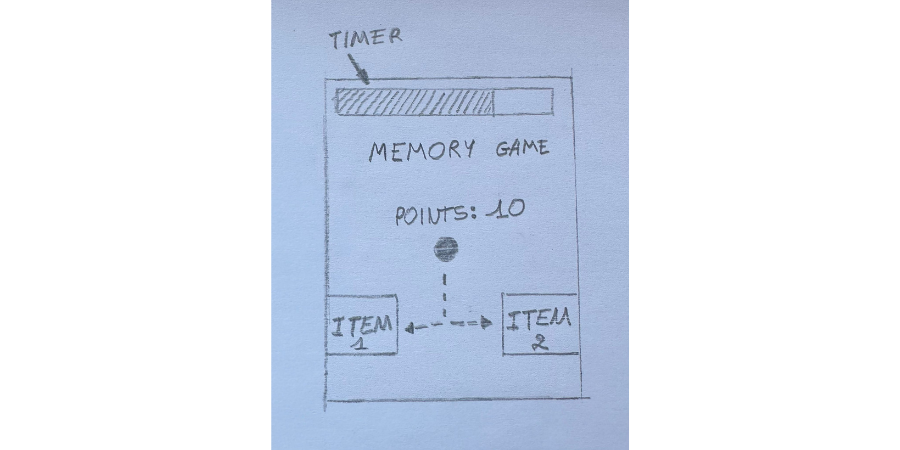 TIMER
MEMORY GAME
POINTS: 10
ITEM
1
ITEM
2